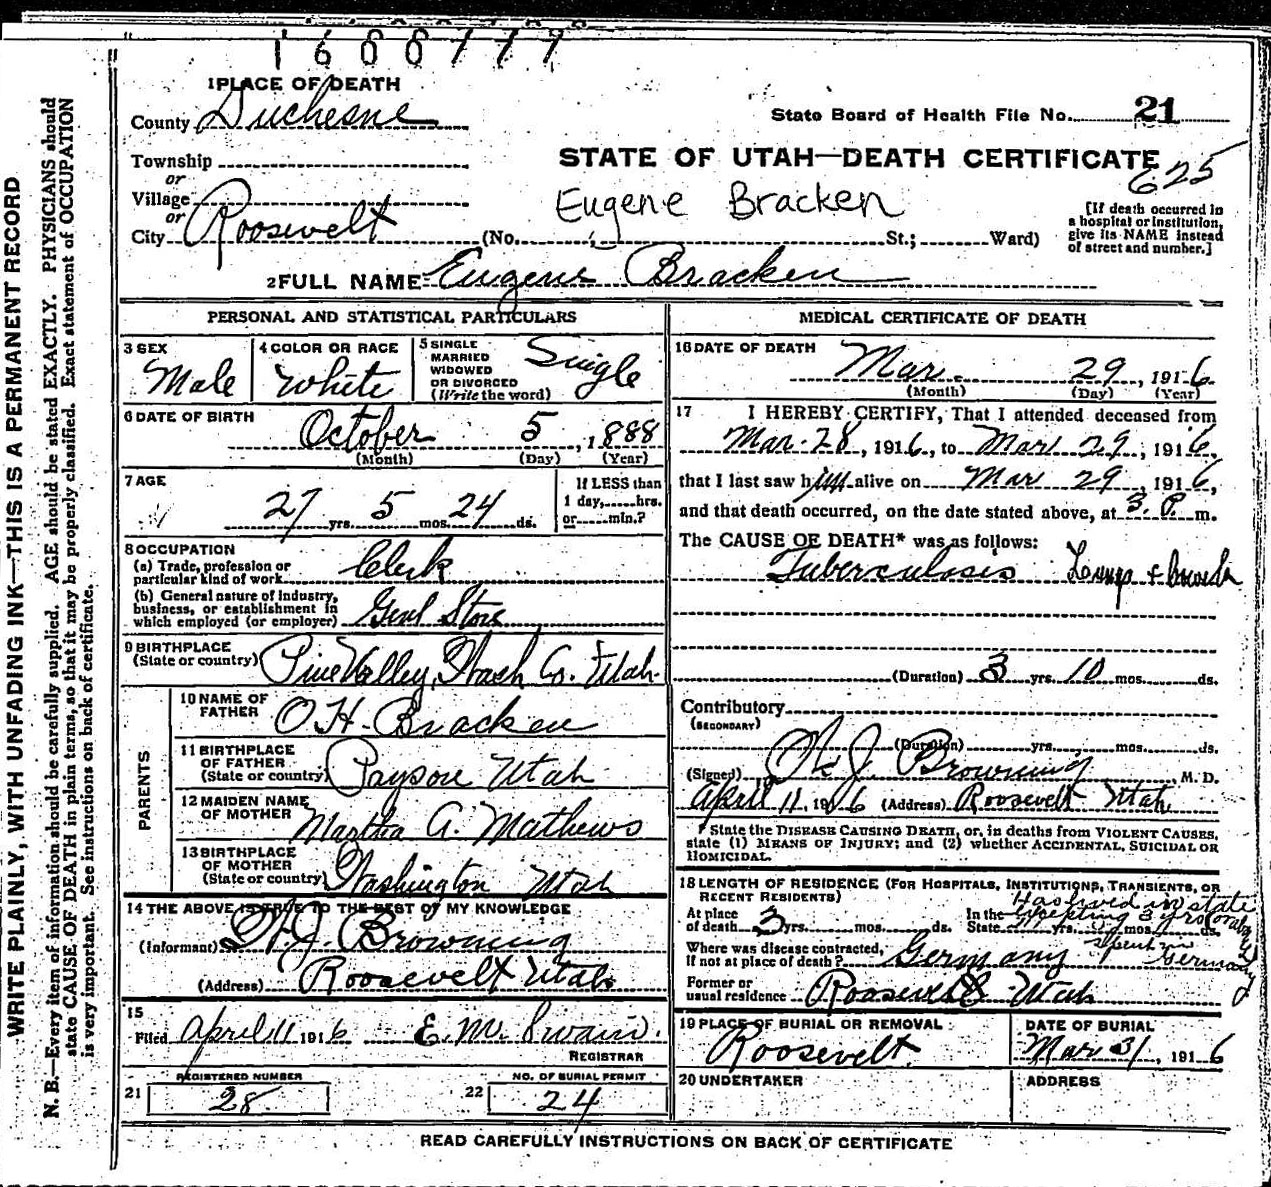 1600777
1 PLACE OF DEATH
County Duchesne
State Board of Health File No. 21
Township
or
Village
or
City Roosevelt (No. St.; Ward)
STATE OF UTAH—DEATH CERTIFICATE
625
Eugene Bracken
[If death occurred in
a hospital or institution,
give its NAME instead
of street and number.]
2 FULL NAME Eugene Bracken
PERSONAL AND STATISTICAL PARTICULARS
3 SEX
Male
4 COLOR OR RACE
White
5 SINGLE
MARRIED
WIDOWED
OR DIVORCED
(Write the word)
Single
6 DATE OF BIRTH
October 5, 1888
(Month) (Day) (Year)
7 AGE
27 yrs. 5 mos. 24 ds.
If LESS than
1 day, hrs.
or min.?
8 OCCUPATION
(a) Trade, profession or
particular kind of work Clerk
(b) General nature of industry,
business, or establishment in
which employed (or employer) Genl Store
9 BIRTHPLACE
(State or country) Pine Valley, Wash Co. Utah
PARENTS
10 NAME OF
FATHER O H. Bracken
11 BIRTHPLACE
OF FATHER
(State or country) Payson Utah
12 MAIDEN NAME
OF MOTHER Martha A. Mathews
13 BIRTHPLACE
OF MOTHER
(State or country) Washington Utah
14 THE ABOVE IS TRUE TO THE BEST OF MY KNOWLEDGE
(Informant) W.J. Browning
(Address) Roosevelt Utah
15
Filed April 11 1916 E. M. Swain.
REGISTRAR
REGISTERED NUMBER
21 28
NO. OF BURIAL PERMIT
22 24
MEDICAL CERTIFICATE OF DEATH
16 DATE OF DEATH
Mar. 29, 1916
(Month) (Day) (Year)
17 I HEREBY CERTIFY, That I attended deceased from
Mar. 28, 1916, to Mar 29, 1916,
that I last saw him alive on Mar 29, 1916,
and that death occurred, on the date stated above, at 3. P. m.
The CAUSE OF DEATH* was as follows:
Tuberculosis Lungs + bowels
(Duration) 3 yrs. 10 mos. ds.
Contributory
(SECONDARY)
(Duration) yrs. mos. ds.
(Signed) J. Browning, M. D.
April 11, 1916 (Address) Roosevelt Utah
* State the DISEASE CAUSING DEATH, or, in deaths from VIOLENT CAUSES,
state (1) MEANS OF INJURY; and (2) whether ACCIDENTAL, SUICIDAL OR
HOMICIDAL.
18 LENGTH OF RESIDENCE (FOR HOSPITALS, INSTITUTIONS, TRANSIENTS, OR
RECENT RESIDENTS)
At place
of death 3 yrs. mos. ds.
In the
State yrs. mos. ds.
Has lived in state
excepting 3 yrs
spent in
Germany
Where was disease contracted,
if not at place of death? Germany
Former or
usual residence Roosevelt Utah
19 PLACE OF BURIAL OR REMOVAL
Roosevelt
DATE OF BURIAL
Mar 31, 1916
20 UNDERTAKER
ADDRESS
READ CAREFULLY INSTRUCTIONS ON BACK OF CERTIFICATE
WRITE PLAINLY, WITH UNFADING INK—THIS IS A PERMANENT RECORD
N. B.—Every item of information should be carefully supplied. AGE should be stated EXACTLY. PHYSICIANS should
state CAUSE OF DEATH in plain terms, so that it may be properly classified. Exact statement of OCCUPATION
is very important. See instructions on back of certificate.